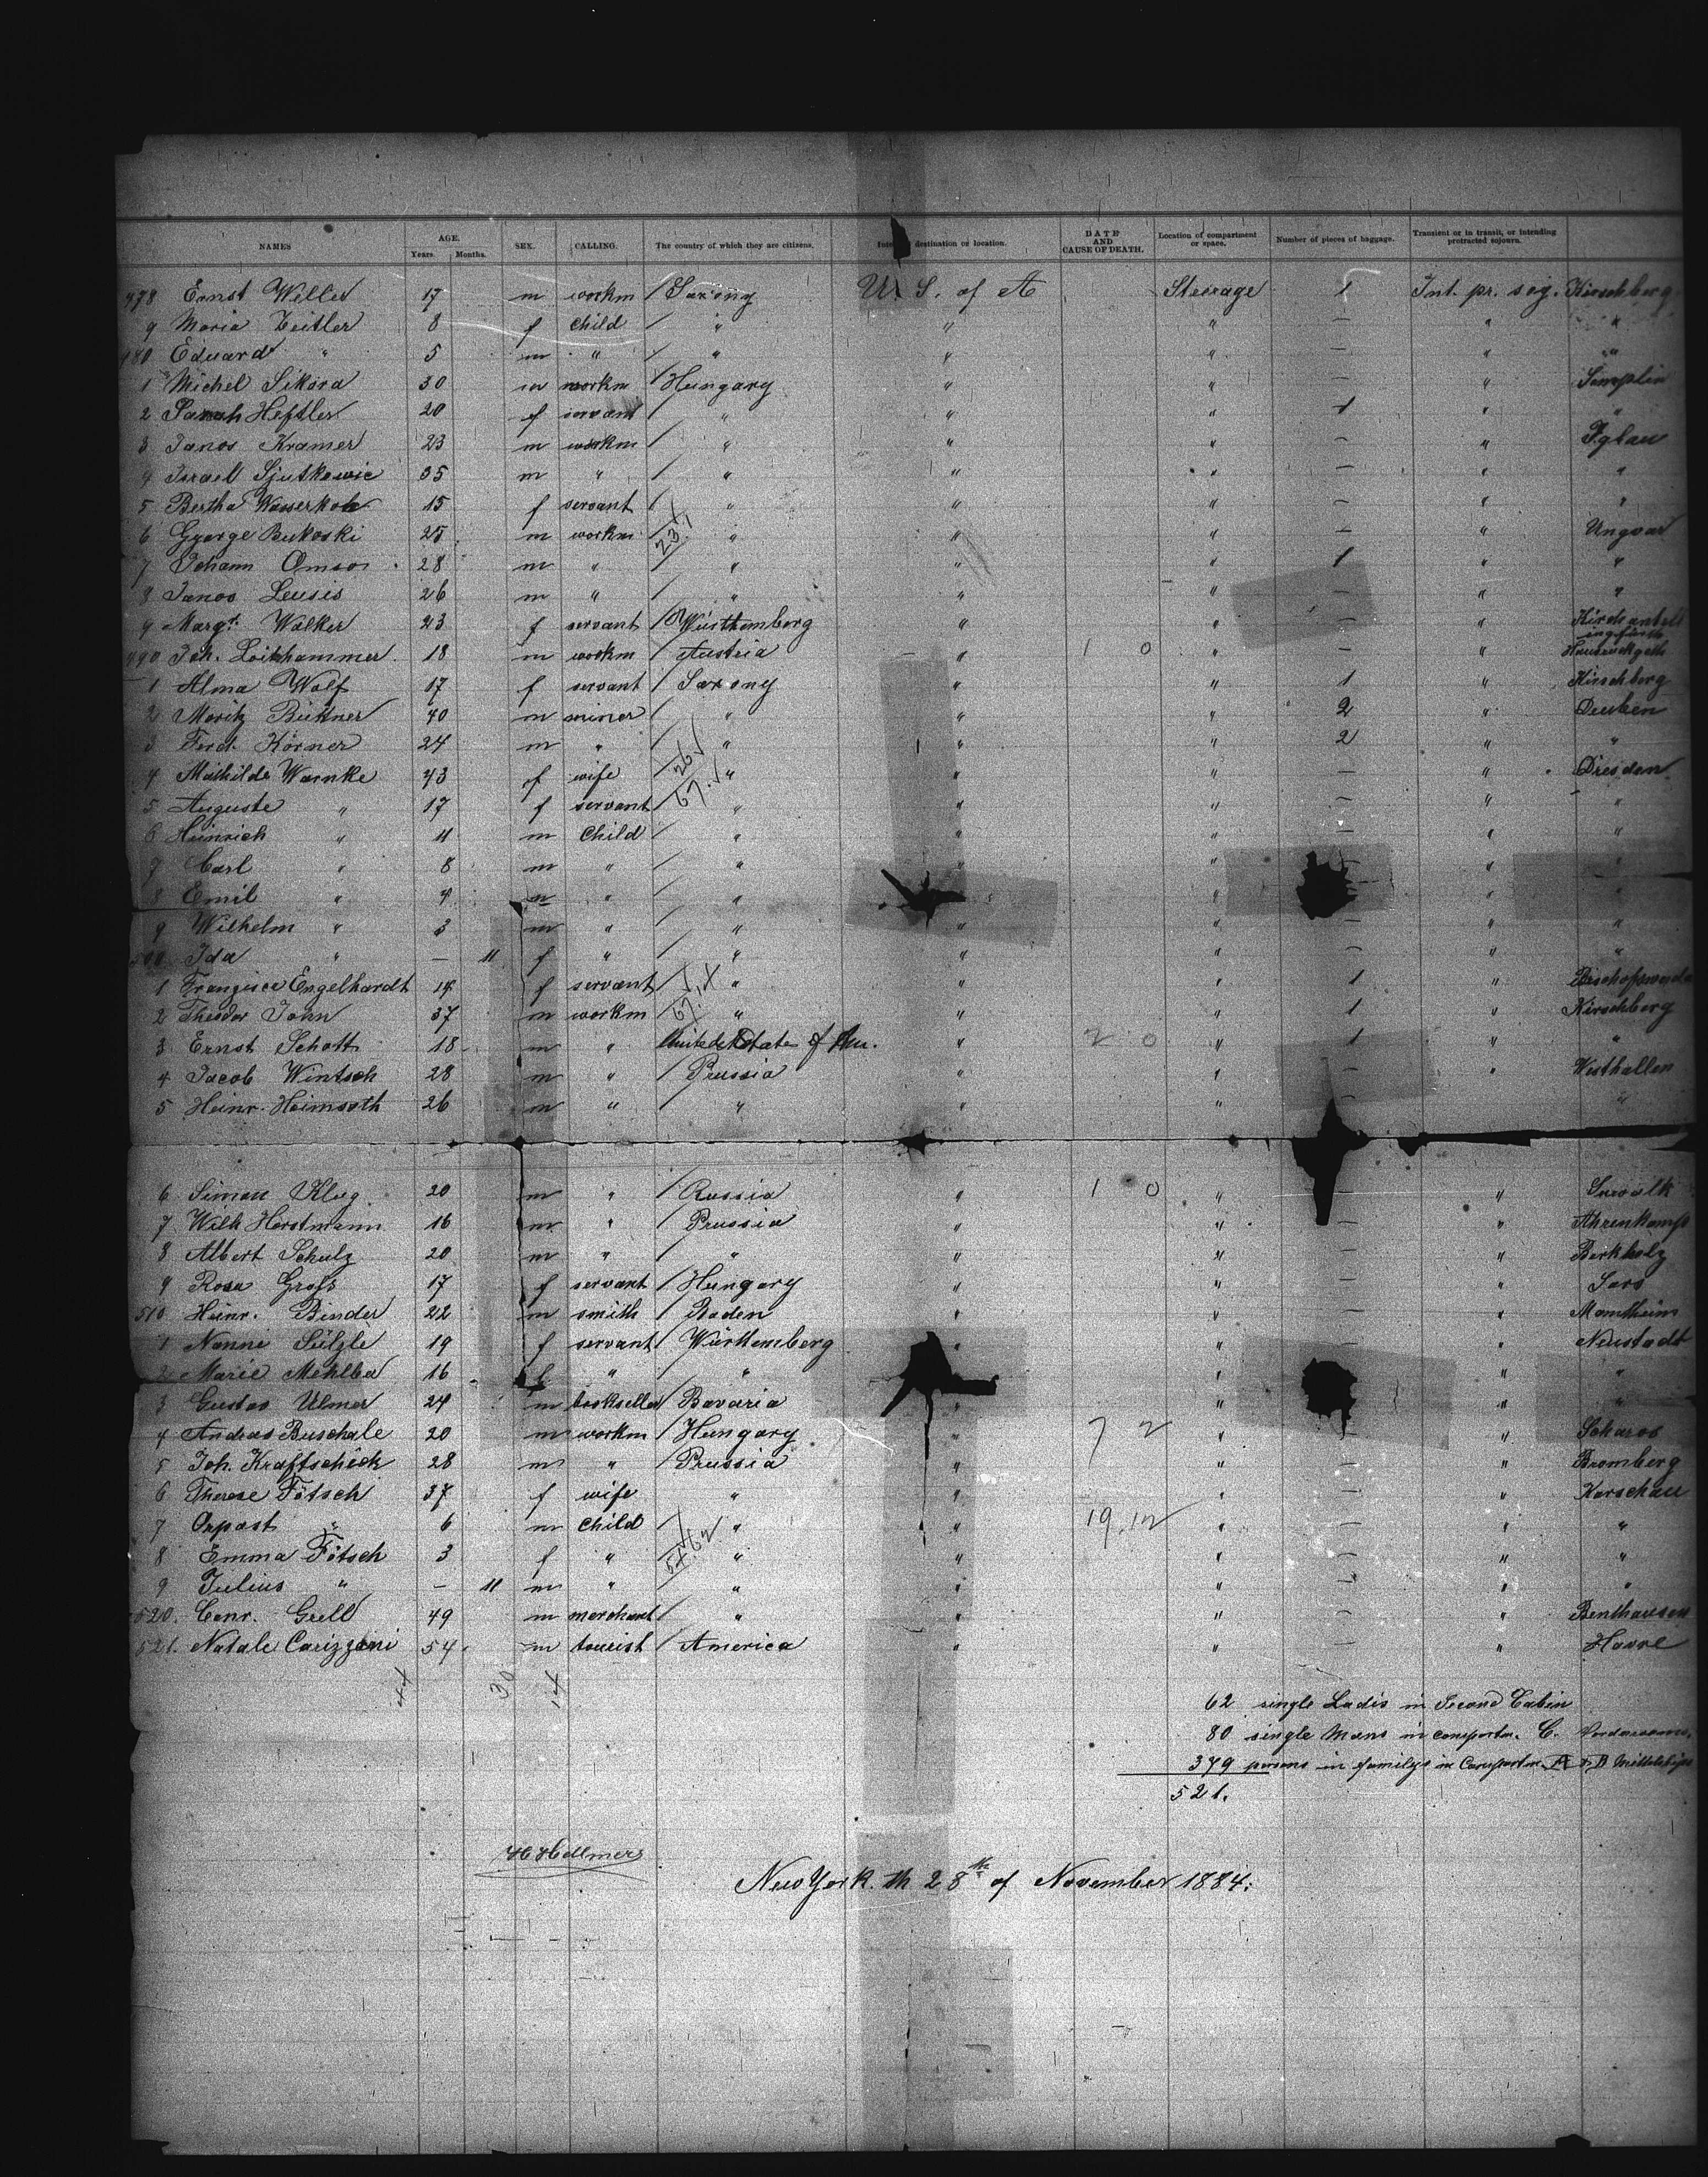 NAMES AGE. Years. Months. SEX. CALLING. The country of which they are citizens. destination or location. DATE AND CAUSE OF DEATH. Location of compartment or space. Number of pieces of baggage. Transient or in transit, or intending protracted sojourn.
478 Ernst Weller 17 m workm / Saxony U. S. of A Steerage 1 Int. pr. soj. Kirschberg
9 Maria Zeitler 8 f child / " " " — " "
480 Eduard " 5 m " / " " " — " "
1 Michel Sikora 30 m workm / Hungary " " — " Semplin
2 Sarah Heftler 20 f servant / " " " 1 " "
3 Janos Kramer 23 m workm / " " " — " Iglau
4 Israel 35 m " / " " " — " "
5 Bertha 15 f servant / " " " — " "
6 Gyorge Bukoski 25 m workm / " " " — " Ungvar
7 Johann 28 m " / " " " 1 " "
8 Janos Leusis 26 m " / " " " — " "
9 Margt. Walker 23 f servant / Würthemberg " " — "
490 Joh. Loithammer 18 m workm / Austria " 1 0 " — "
1 Alma Wolf 17 f servant / Saxony " " 1 " Kirschberg
2 Moritz Bükner 40 m miner / " " " 2 " Deuben
3 Ferd. Körner 24 m " / " " " 2 " "
4 Mathilde Warnke 43 f wife / " " " — " Dresden
5 Auguste " 17 f servant / " " " — " "
6 Heinrich " 11 m Child / " " " — " "
7 Carl " 8 m " / " " " — " "
8 Emil " 4 m " / " " " " "
9 Wilhelm " 3 m " / " " " — " "
500 Ida " — 11 f " / " " " — " "
1 Engelhardt 19 f servant / " " " 1 " Bischofswerda
2 Theodor John 37 m workm / " " " 1 " Kirschberg
3 Ernst Schott 18 m " United State of Am. " 2 0 " 1 " "
4 Jacob Wintsch 28 m " / Prussia " " — " Westhallen
5 Heinr. Heimsoth 26 m " / " " " "
6 Simon Klug 20 m " / Russia " 1 0 " — " Suwalk
7 Wilh Horstmann 16 m " / Prussia " " — " Ahrenkamp
8 Albert Schulz 20 m " / " " " — " Berkholz
9 Rosa Groß 17 f servant / Hungary " " — " Saros
510 Heinr. Binder 22 m smith / Baden " " — " Manheim
1 Nanne Sülzle 19 f servant / Württemberg " " — " Neustadt
2 Marie Mehlba 16 f " / " " " " "
3 Gustav Ulmer 24 m bookseller / Bavaria " " " "
4 Andras Buschale 20 m workm / Hungary " 7 2 " — " Scharos
5 Joh. Kraftschick 28 m " / Prussia " " — " Bromberg
6 Therese Fötsch 37 f wife " " " — " Karschau
7 " 6 m child / " " 19.12 " — " "
8 Emma Fötsch 3 f " / " " " — " "
9 Julius " — 11 m " " " " — " "
520. Conr. Grell 49 m merchant / " " " — " Benthausen
521. Natale Carizzoni 54 m tourist / America " " — " Havre
44 30 14
62 single Ladis in Second Cabin
80 single Mens in compartm. C.
379 persons in familys in Compartm. A & B Mittelships
521.
H Hellmers
New York. th 28th of November 1884.